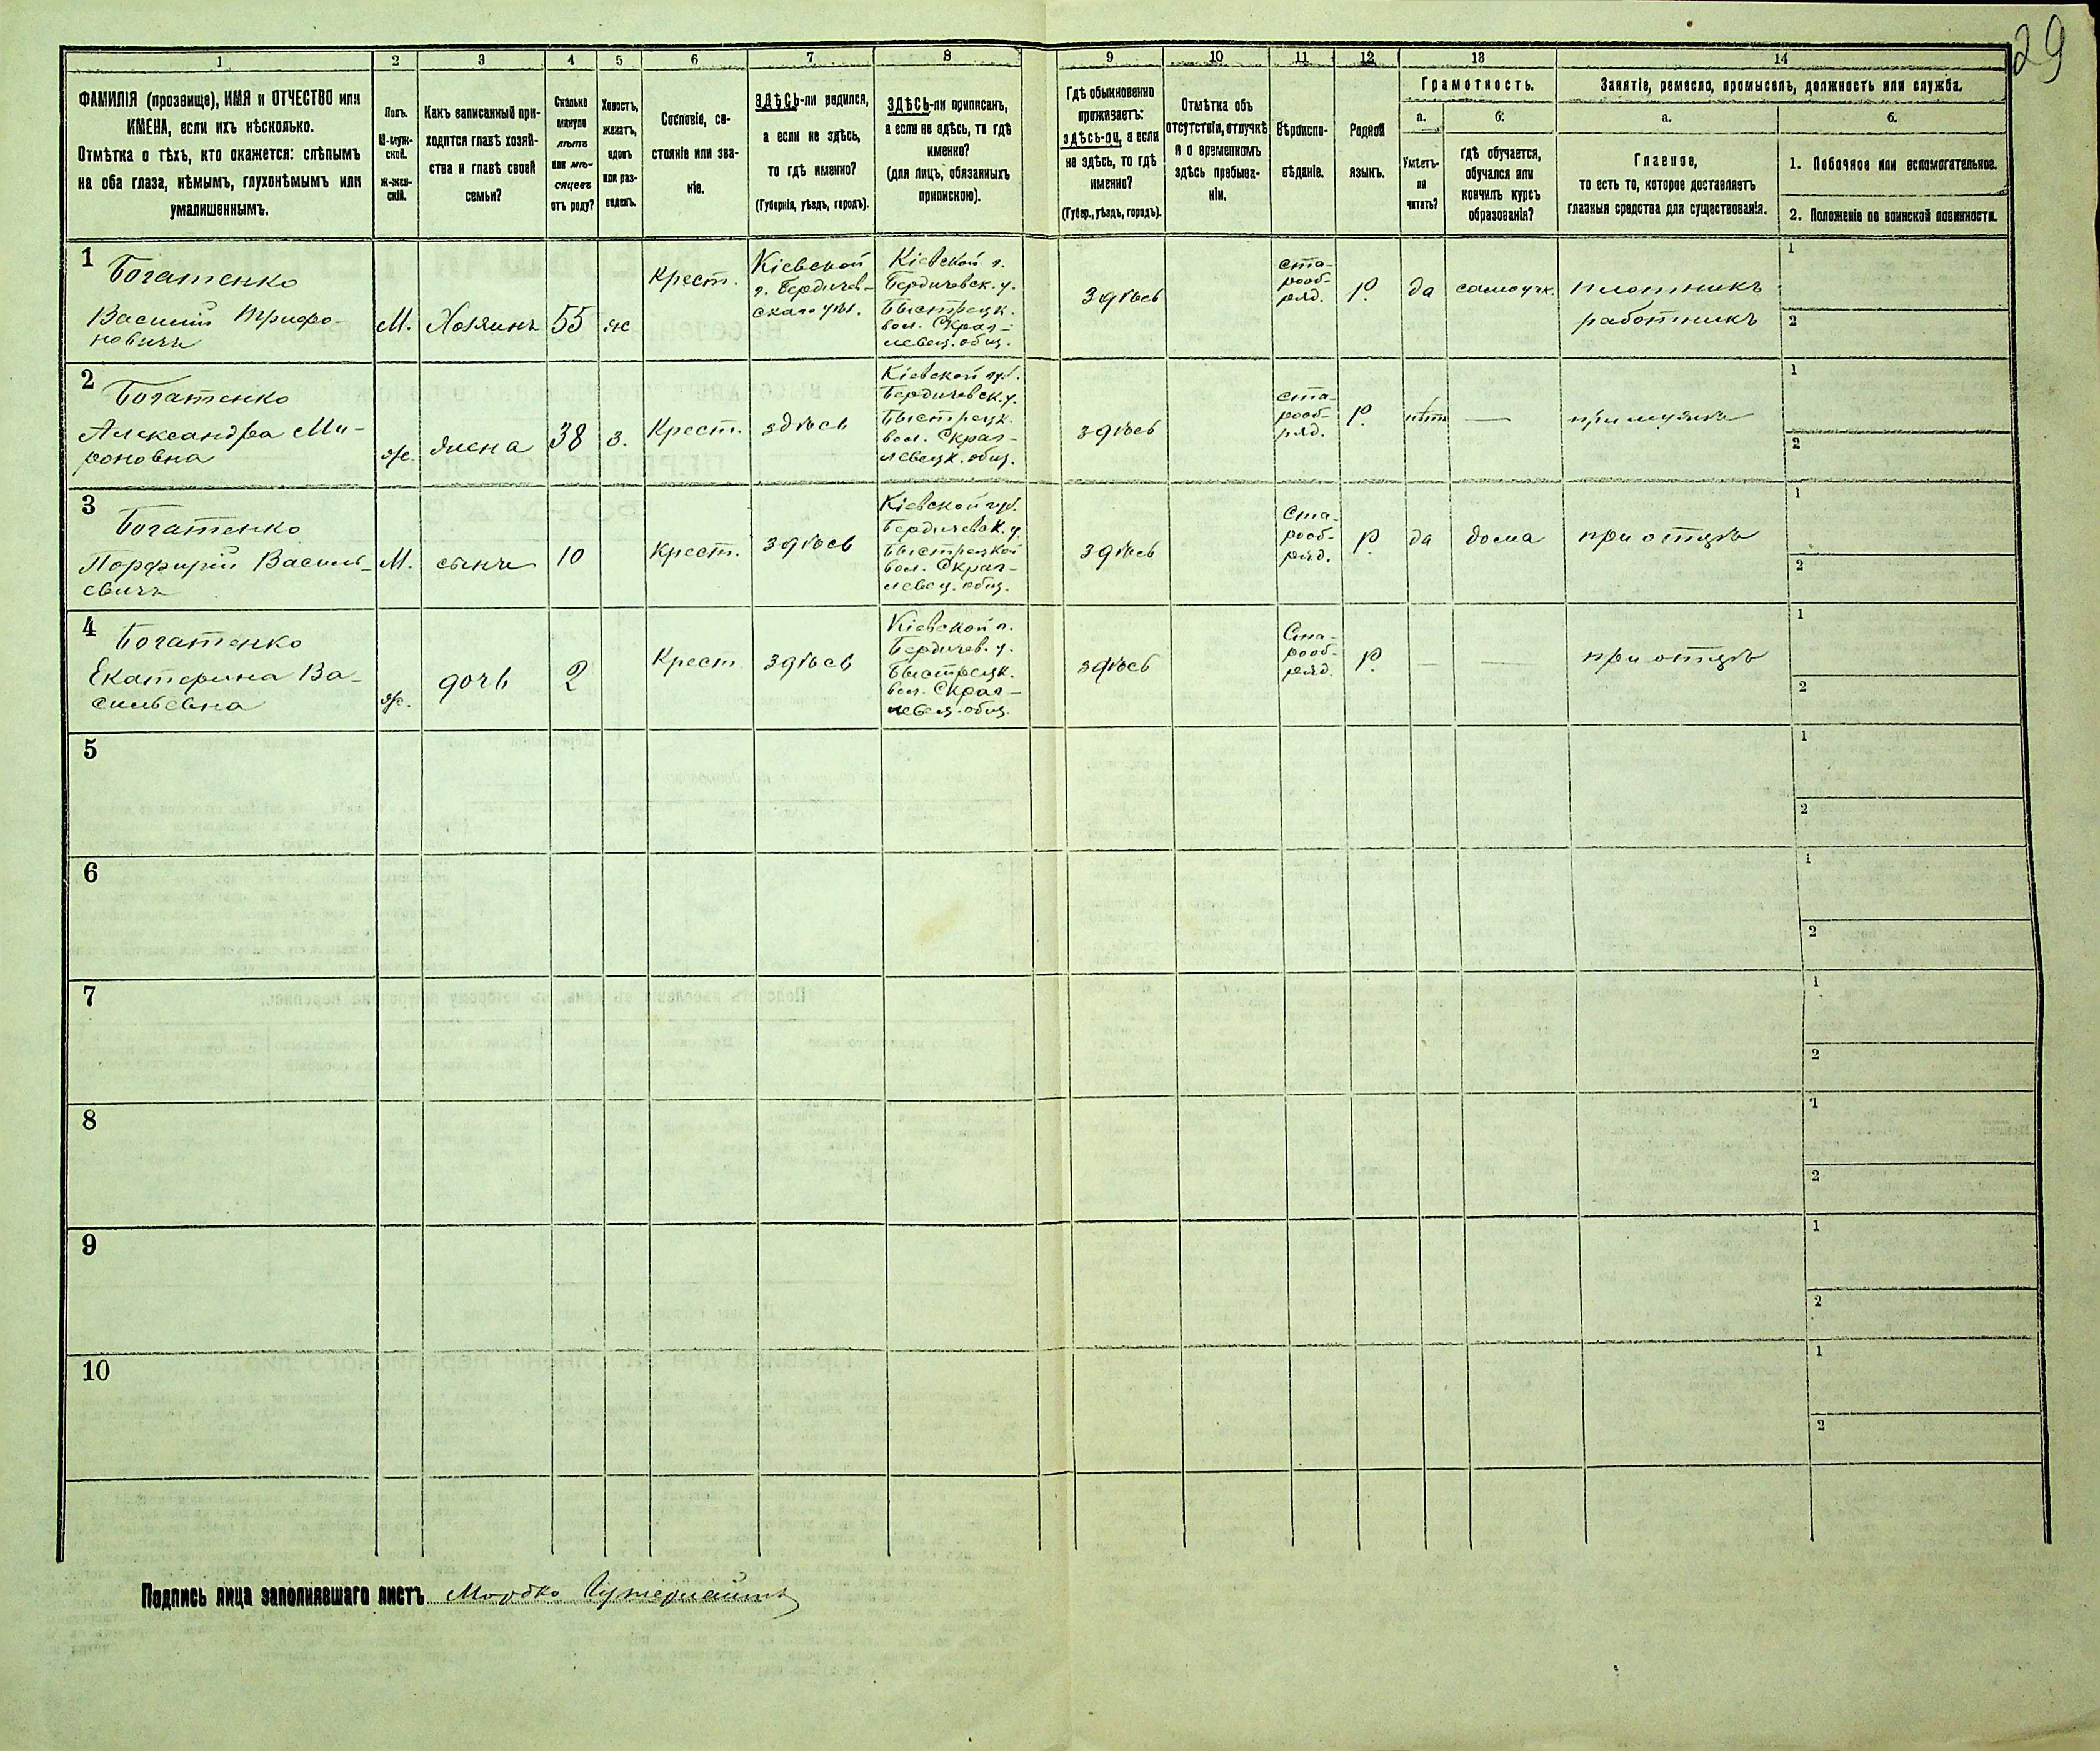 29
1
2
3
4
5
6
7
8
9
10
11
12
13
14
ФАМИЛІЯ (прозвище), ИМЯ и ОТЧЕСТВО или
ИМЕНА, если ихъ нѣсколько.
Отмѣтка о тѣхъ, кто окажется: слѣпымъ
на оба глаза, нѣмымъ, глухонѣмымъ или
умалишеннымъ.
Полъ.
М-муж-
ской.
Ж-жен-
скій.
Какъ записанный при-
ходится главѣ хозяй-
ства и главѣ своей
семьи?
Сколько
минуло
лѣтъ
или мѣ-
сяцевъ
отъ роду?
Холостъ,
женатъ,
вдовъ
или раз-
веденъ.
Сословіе, со-
стояніе или зва-
ніе.
ЗДѢСЬ-ли родился,
а если не здѣсь,
то гдѣ именно?
(Губернія, уѣздъ, городъ).
ЗДѢСЬ-ли приписанъ,
а если не здѣсь, то гдѣ
именно?
(для лицъ, обязанныхъ
припискою).
Гдѣ обыкновенно
проживаетъ:
здѣсь-ли, а если
не здѣсь, то гдѣ
именно?
(Губер., уѣздъ, городъ).
Отмѣтка объ
отсутствіи, отлучкѣ
и о временномъ
здѣсь пребыва-
ніи.
Вѣроиспо-
вѣданіе.
Родной
языкъ.
Грамотность.
а.
б.
Умѣетъ-
ли
читать?
гдѣ обучается,
обучался или
кончилъ курсъ
образованія?
Занятіе, ремесло, промыселъ, должность или служба.
а.
б.
Главное,
то есть то, которое доставляетъ
главныя средства для существованія.
1. Побочное или вспомогательное.
2. Положеніе по воинской повинности.
1
Богатенко
Василій Трифо-
новичъ
М.
Хозяинъ
55
ж
Крест.
Кіевской
г. Бердичев-
скаго уѣз.
Кіевской г.
Бердичевск. у.
Быстрецк.
вол.
общ.
здѣсь
ста-
рооб-
ряд.
Р.
да
самоучк.
плотникъ
работникъ
1
2
2
Богатенко
Александра Ми-
роновна
ж.
жена
38
з.
Крест.
здѣсь
Кіевской губ.
Бердичевск. у.
Быстрецк.
вол.
общ.
здѣсь
ста-
рооб-
ряд.
Р.
нѣтъ
—
при мужѣ
1
2
3
Богатенко
Порфирій Василь-
евичъ
М.
сынъ
10
Крест.
здѣсь
Кіевской губ.
Бердичевск. у.
Быстрецкой
вол.
общ.
здѣсь
Ста-
рооб-
ряд.
Р.
да
дома
при отцѣ
1
2
4
Богатенко
Екатерина Ва-
сильевна
ж.
дочь
2
Крест.
здѣсь
Кіевской г.
Бердичев. у.
Быстрецк.
вол.
общ.
здѣсь
Ста-
рооб-
ряд.
Р.
—
—
при отцѣ
1
2
5
1
2
6
1
2
7
1
2
8
1
2
9
1
2
10
1
2
Подпись лица заполнявшаго листъ Мордко